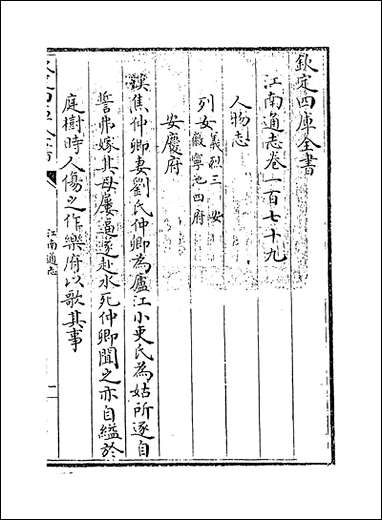 欽定四庫全書
江南通志卷一百七十九
人物志
列女義烈三 安
徽寧池四府
安慶府
漢焦仲卿妻劉氏仲卿為廬江小吏氏為姑所逐自
誓弗嫁其母屢逼遂赴水死仲卿聞之亦自縊於
庭樹時人傷之作樂府以歌其事
江南通志